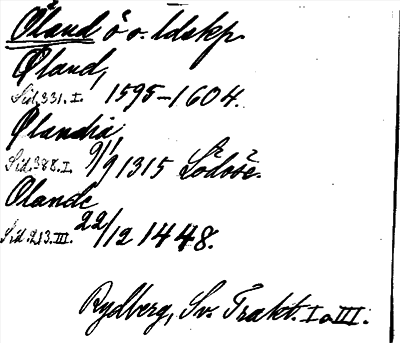 Öland ö o. ldskp.
Øland,
Sid. 331. I. 1595–1604.
Ølandia
Sid. 388. I. 9/9 1315 Lödöse.
Olande
Sid. 213. III. 22/12 1448.
Rydberg, Sv. Trakt. I o III.